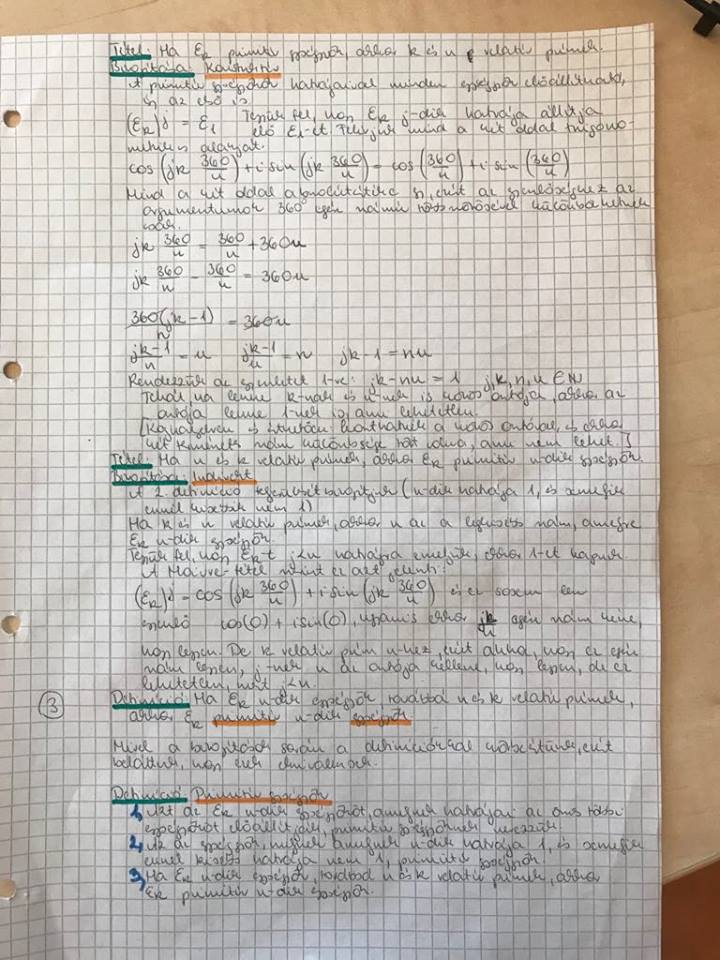 Tétel: Ha εk primitív egységgyök, akkor k és n relatív prímek.
Bizonyítása:
A primitív egységgyök hatványaival minden egységgyök előállítható,
így az első is.
(εk)^j = ε1 Tegyük fel, hogy εk j-dik hatványa állítja
elő ε1-et. Írjuk mind a két oldal trigono-
metrikus alakját.
cos(jk 360/n) + i sin(jk 360/n) = cos(360/n) + i sin(360/n)
Mind a két oldal abszolútértéke 1, ezért az egyenlőséghez az
argumentumok 360° egész számú többszörösével különbözhetnek
jk 360/n = 360/n + 360u
jk 360/n - 360/n = 360u
360(jk-1)/n = 360u
jk-1/n = u jk-1/u = n jk-1 = nu
Rendezzük az egyenletet 1-re: jk-nu = 1 j,k,n,u ∈ N
Tehát, ha lenne k-nak és n-nek is közös osztója, akkor az
osztója lenne 1-nek is, ami lehetetlen.
és akkor
két számnak nem lehet.]
Tétel: Ha n és k relatív prímek, akkor εk primitív n-dik egységgyök.
Bizonyítása: Indirekt
A 2. definíció teljesülését bizonyítjuk (n-dik hatványa 1, és semelyik
ennél kisebb nem 1)
Ha k és n relatív prímek, akkor n az a legkisebb szám, amelyre
εk n-dik egységgyök.
Tegyük fel, hogy εk-t j<n hatványra emeljük, akkor 1-et kapunk.
A Moivre-tétel szerint ez azt jelenti:
(εk)^j = cos(jk 360/n) + i sin(jk 360/n) és ez sosem lesz
egyenlő cos(0) + i sin(0), ugyanis akkor jk/n egész szám kéne,
hogy legyen. De k relatív prím n-hez, ezért ahhoz, hogy ez egész
szám legyen, j-nek n az osztója kellene, hogy legyen, de ez
lehetetlen, mert j<n.
3
Definíció: Ha εk n-dik egységgyök továbbá n és k relatív prímek,
akkor εk primitív n-dik egységgyök
Mivel a bizonyítások során a definíciókkal ezért
beláttuk, hogy ezek ekvivalensek.
Definíció: Primitív egységgyök
1, Azt az εk n-dik egységgyököt, amelynek hatványai az összes többi
egységgyököt előállítják, primitív egységgyöknek nevezzük.
2, Az az egységgyök, amelynek n-dik hatványa 1, és semelyik
ennél kisebb hatványa nem 1, primitív egységgyök.
3, Ha εk n-dik egységgyök, továbbá n és k relatív prímek, akkor
εk primitív n-dik egységgyök.